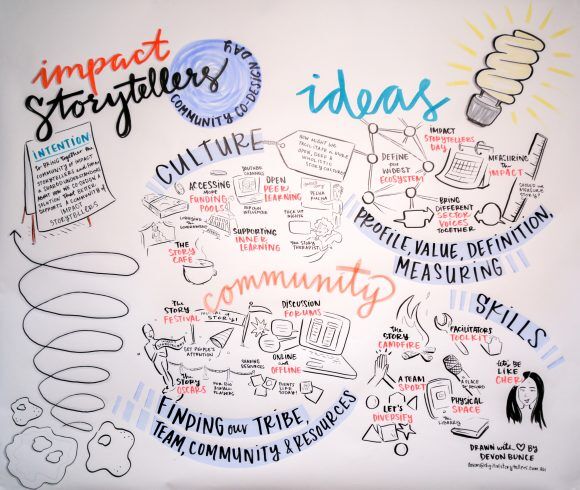 impact
Storytellers
COMMUNITY CO-DESIGN DAY
INTENTION
to BRING Together the
COMMUNITY of IMPACT
STORYTELLERS and
A SHARED UNDERSTANDING
ABOUT HOW WE CO-DESIGN A
SOLUTION THAT BETTER
SUPPORTS A COMMUNITY of
IMPACT
STORYTELLERS
ideas
CULTURE
HOW MIGHT WE
FACILITATE A MORE
OPEN, DEEP &
WHOLISTIC
STORY CULTURE
YOUTUBE
CHANNELS
ACCESSING
MORE
FUNDING
POOLS
OPEN
PEER
LEARNING
PECHA
KUCHA
LOBBYING THE
GOVERNMENT
SUPPORTING
INNER
LEARNING
THE
STORY
CAFE
STORY
THERAPIST
DEFINE
our
WIDEST
ECOSYSTEM
IMPACT
STORYTELLERS
DAY
MEASURING
the
IMPACT
SHOULD WE
MEASURE
STORY?
BRING
DIFFERENT
SECTOR
VOICES
TOGETHER
PROFILE, VALUE, DEFINITION,
MEASURING
community
The
STORY
FESTIVAL
STORY!
GET PEOPLE'S
ATTENTION
The
STORY
OSCARS
DISCUSSION
FORUMS
SHARING
RESOURCES!
ONLINE
and
OFFLINE
EVENTS
LIKE
TODAY!
FINDING our TRIBE,
TEAM, COMMUNITY & RESOURCES
SKILLS
THE
STORY
CAMPFIRE
FACILITATORS
TOOLKIT
let's BE
LIKE
CHER
A TEAM
SPORT
A PLACE
to RECORD
PHYSICAL
SPACE
LET'S
DIVERSIFY
The
LIBRARY
DRAWN with BY
DEVON BUNCE
devon@digitalstorytellers.com.au